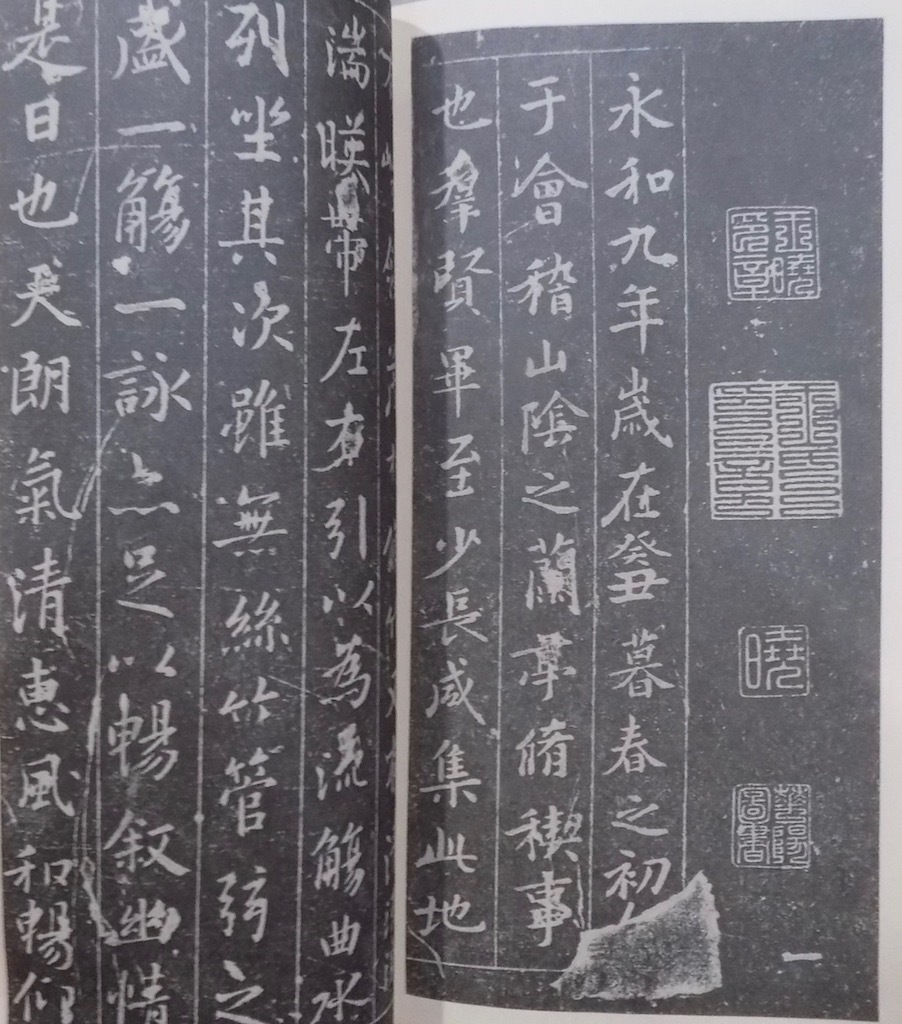 曉
一
永和九年歲在癸丑暮春之初
于會稽山陰之蘭亭脩稧事
也羣賢畢至少長咸集此地
湍暎帶左右引以為流觴曲水
列坐其次雖無絲竹管弦之
盛一觴一詠亦足以暢叙幽情
是日也天朗氣清惠風和暢仰